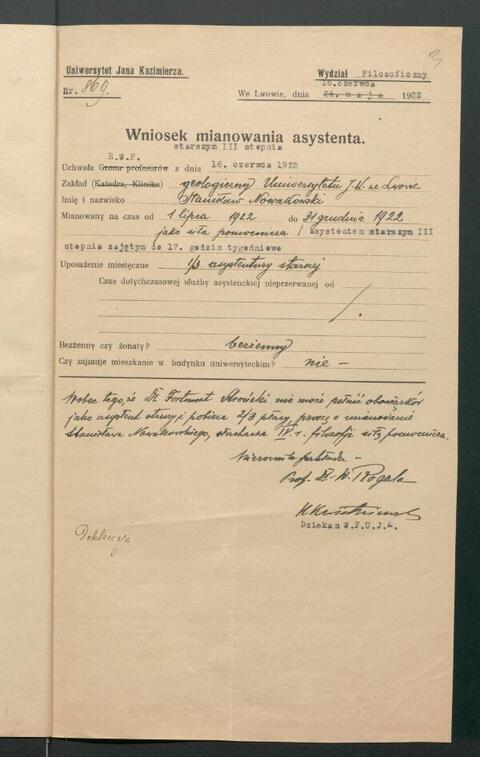 3
Uniwersytet Jana Kazimierza.
Wydział Filozoficzny
Nr. 869.
16.czerwca
We Lwowie, dnia 24. maja 1922
Wniosek mianowania asystenta.
starszym III stopnia
R.W.F.
Uchwała Grona profesorów z dnia 16. czerwca 1922
Zakład (Katedra, Klinika) geologiczny Uniwersytetu J.K. we Lwowie
Imię i nazwisko Stanisław Nowakowski
Mianowany na czas od 1 lipca 1922 do 31 grudnia 1922
jako siła pomocnicza / asystentem starszym III
stopnia zajętym do 17. godzin tygodniowo
Uposażenie miesięczne 1/3 asystentury starszej
Czas dotychczasowej służby asystenckiej nieprzerwanej od
Bezżenny czy żonaty? bezżenny
Czy zajmuje mieszkanie w budynku uniwersyteckim? nie –
Wobec tego, że Dr Fortunat nie może pełnić obowiązków
jako asystent starszy i pobiera 2/3 płacy, proszę o mianowanie
Stanisława Nowakowskiego, słuchacza IV r. filozofji siłą pomocniczą.
Kierownik zakładu –
Prof. Dr. W. Rogala
Dziekan W.F.U.J.K.